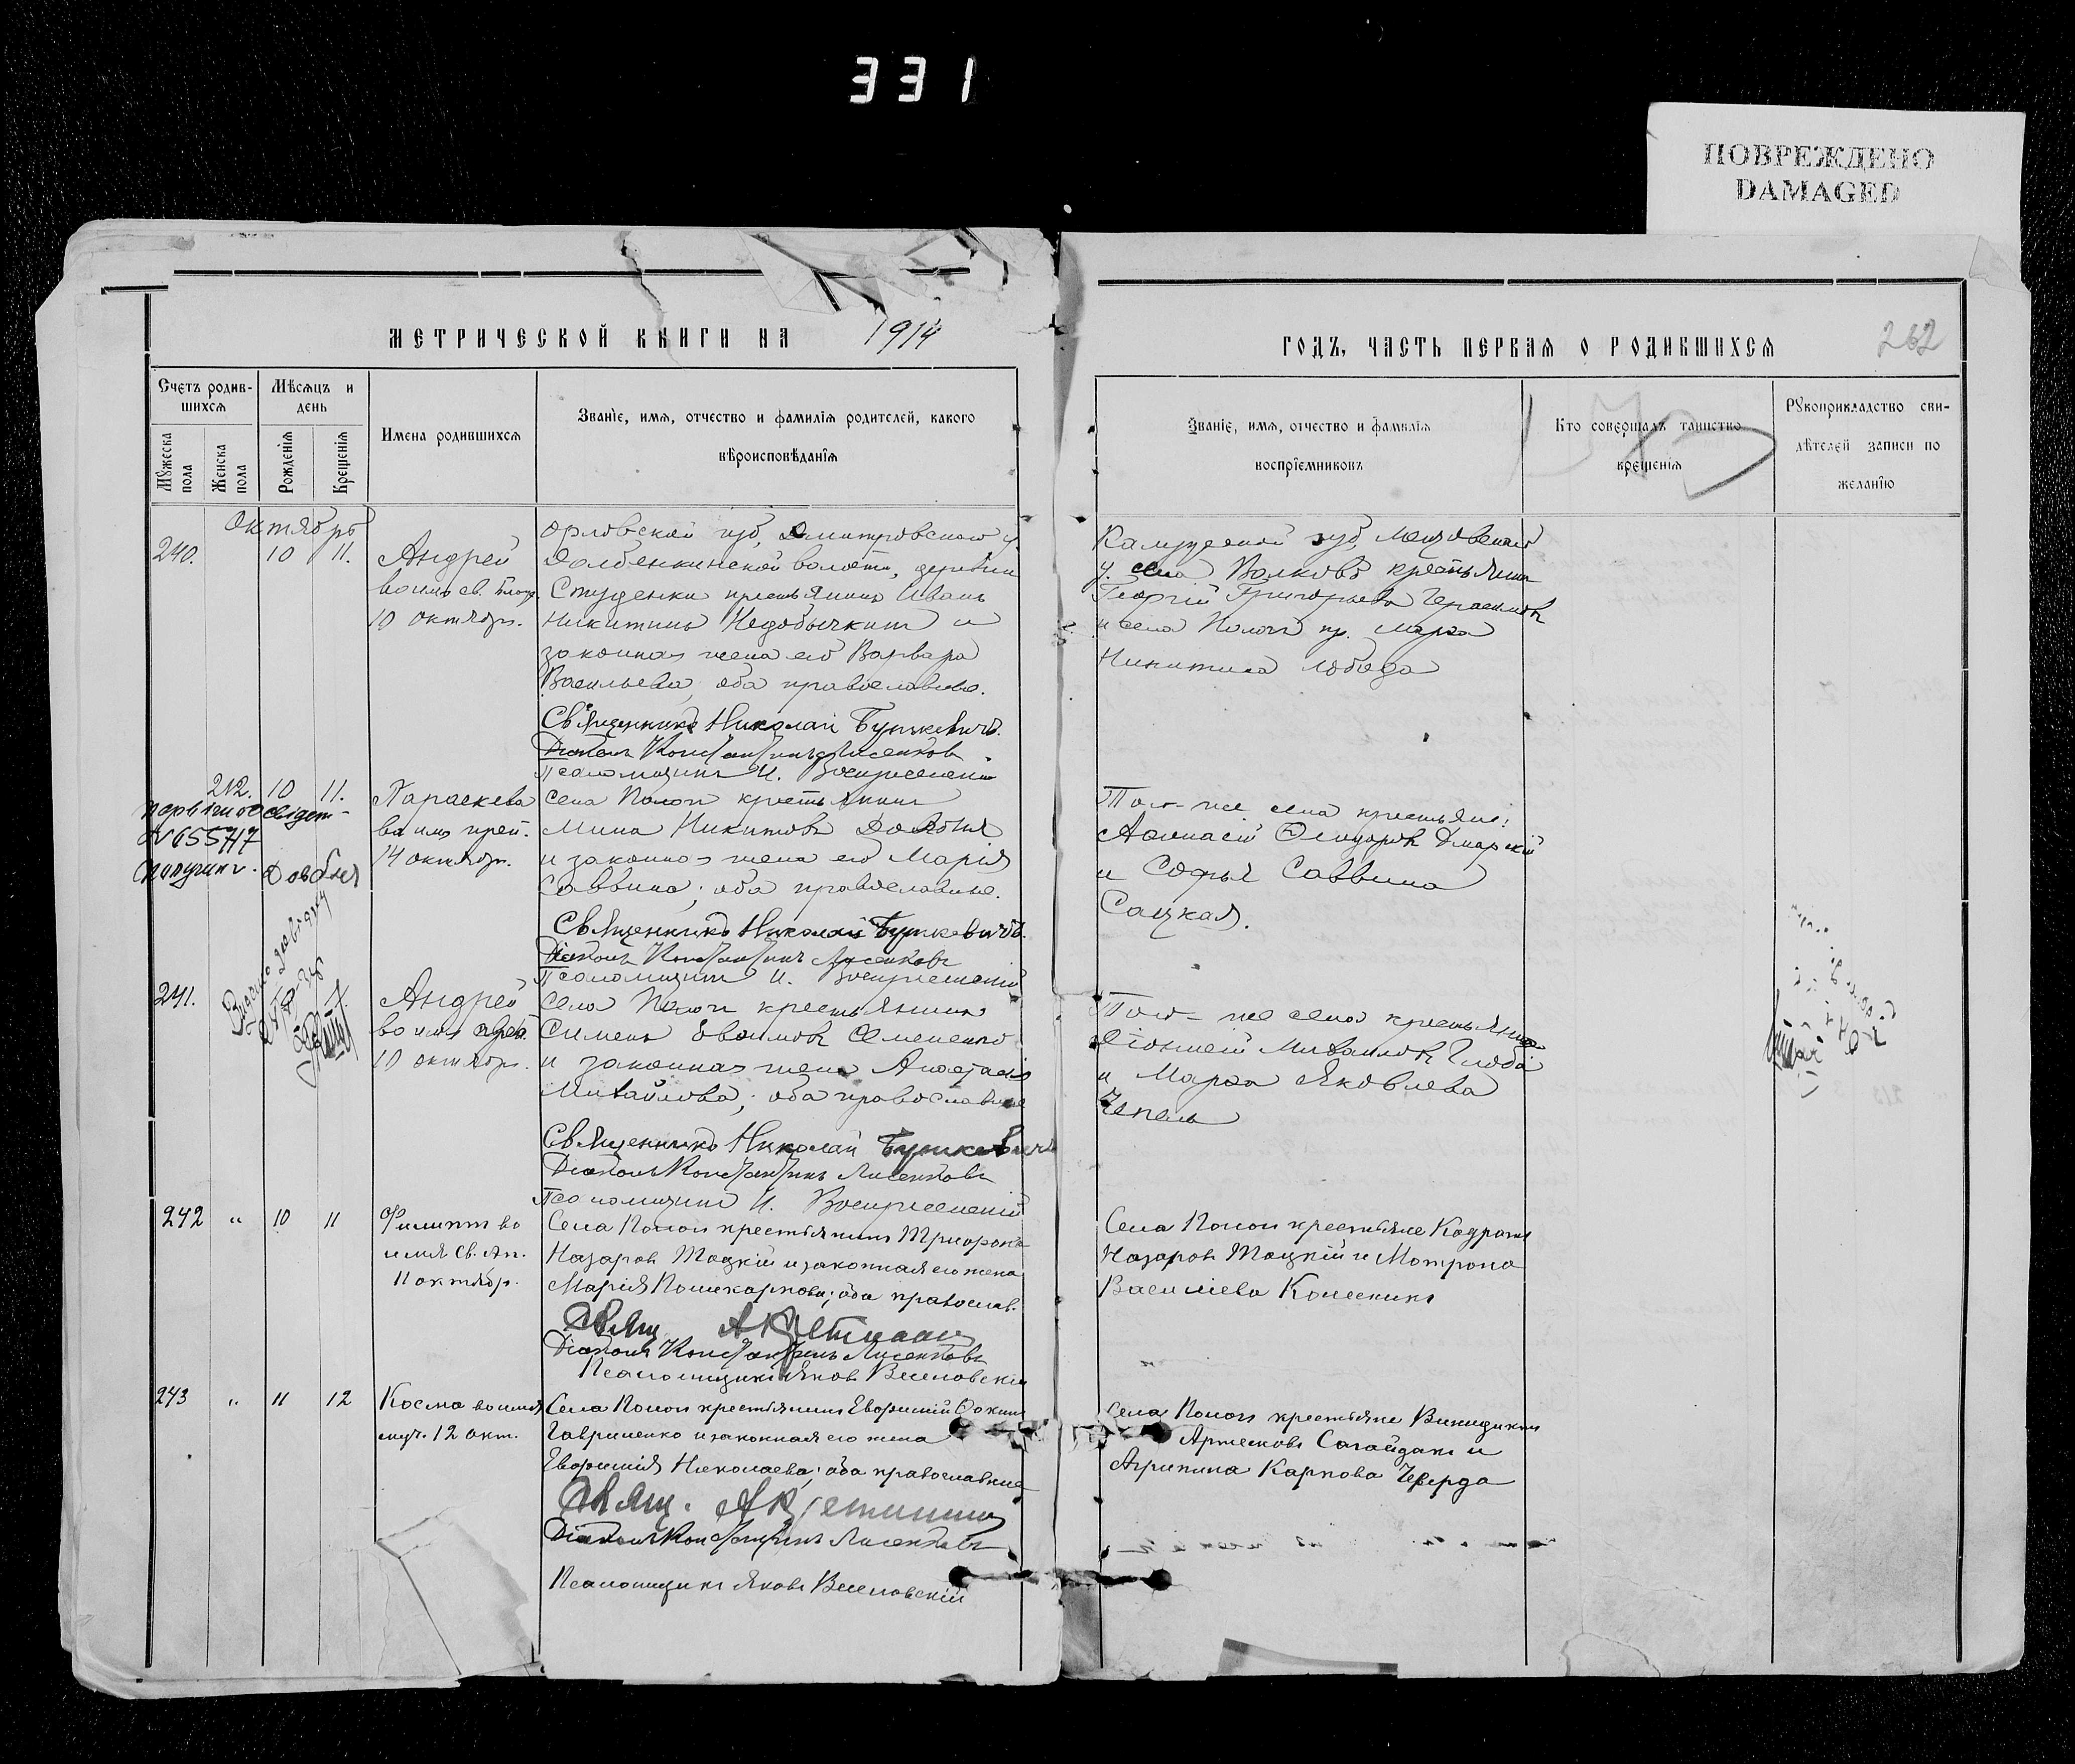 331
ПОВРЕЖДЕНО
DAMAGED
МЕТРИЧЕСКОЙ КНИГИ НА 1914
ГОДЪ, ЧАСТЬ ПЕРВАЯ О РОДИВШИХСЯ
262
Счетъ родив-
шихся
Мѣсяцъ и
день
Мужеска
пола
Женска
пола
Рожденія
Крещенія
Имена родившихся
Званіе, имя, отчество и фамилія родителей, какого
вѣроисповѣданія
Званіе, имя, отчество и фамилія
воспріемниковъ
Кто совершалъ таинство
крещенія
Рукоприкладство сви-
дѣтелей записи по
желанію
Октябрь
240. 10 11.
Андрей
во имя св. Блаж.
10 октябр.
Орловской губ, Дмитровского у.
Долбенкинской волости, деревни
Студенки крестьянинъ Иванъ
Никитинъ Недобычкинъ и
законная жена его Варвара
Васильева, оба православные.
Священникъ Николай Буткевичъ.
Діаконъ Константинъ Лисенковъ
Псаломщикъ И. Воскресенскій
Калужской губ, Мещовскаго
у. села Волково крестьянинъ
Георгій Григорьевъ Герасимовъ
и села Пологи кр. Марѳа
Никитина Лобода
212. 10 11.
Параскева
во имя преп.
14 октябр.
Села Пологи крестьянинъ
Мина Никитовъ Довбня
и законная жена его Марія
Саввина; оба православные.
Священникъ Николай Буткевичъ.
Діаконъ Константинъ Лисенковъ
Псаломщикъ И. Воскресенскій
Того-же села крестьяне:
и Софья Саввина
Сацкая.
№ 655717
получил. Довбня
241.
Андрей
во имя преп.
10 октябр.
Села Пологи крестьянинъ
Симеонъ Евѳимовъ Семененко
и законная жена Анастасія
Михайлова; оба православные
Священникъ Николай Буткевичъ
Діаконъ Константинъ Лисенковъ
Псаломщикъ И. Воскресенскій
Того-же села крестьяне
Михайловъ Глоба
и Марѳа Яковлева
Чепель
242 " 10 11
Филиппъ во
имя Св. Ап.
11 октябр.
Села Пологи крестьянинъ Трифонъ
Назаровъ Тоцкій и законная его жена
Марія Поликарпова; оба православ.
Свящ
Діаконъ Константинъ Лисенковъ
Псаломщикъ Яковъ Веселовскій
Села Пологи крестьяне Кодратъ
Назаровъ Тоцкій и Мотрона
Василіева Колесникъ
243 " 11 12
Косма во имя
муч. 12 окт.
Села Пологи крестьянинъ Евфимій Фокинъ
Гавриленко и законная его жена
Евфимія Николаева; оба православные
Свящ.
Діаконъ Константинъ Лисенковъ
Псаломщикъ Яковъ Веселовскій
Села Пологи крестьяне
Артемовъ Сагайдакъ и
Агрипина Карпова Чверда